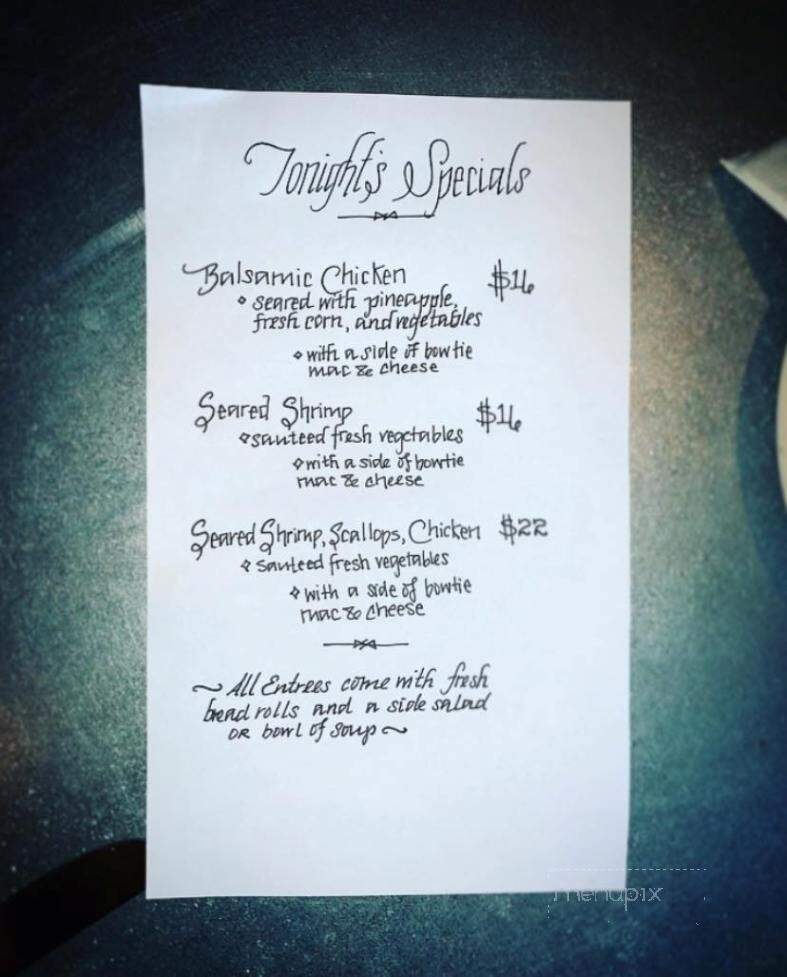 Tonight's Specials
Balsamic Chicken $16
seared with pineapple,
fresh corn, and vegetables
with a side of bowtie
mac & cheese
Seared Shrimp $16
sauteed fresh vegetables
with a side of bowtie
mac & cheese
Seared Shrimp, Scallops, Chicken $22
sauteed fresh vegetables
with a side of bowtie
mac & cheese
~ All Entrees come with fresh
bread rolls and a side salad
OR bowl of soup ~
menupix